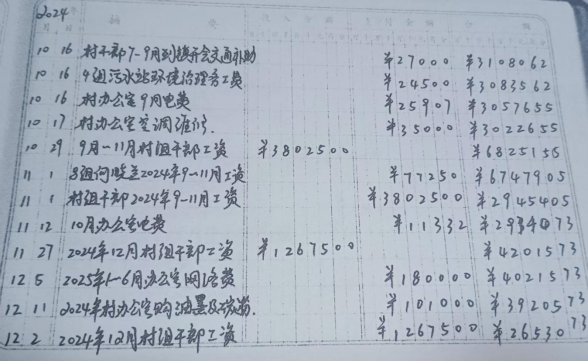 2024
10 16 村干部7-9月到镇开会交通补助 ¥27000 ¥3108062
10 16 9组污水站环境治理务工费 ¥24500 ¥3083562
10 16 村办公室9月电费 ¥25907 ¥3057655
10 17 村办公室空调维修. ¥35000 ¥3022655
10 29 9月-11月村组干部工资 ¥3802500 ¥6825155
11 1 8组何 2024年9-11月工资 ¥77250 ¥6747905
11 1 村组干部2024年9-11月工资 ¥3802500 ¥2945405
11 12 10月办公室电费 ¥11332 ¥2934073
11 27 2024年12月村组干部工资 ¥1267500 ¥4201573
12 5 2025年1-6月办公室网络费 ¥180000 ¥4021573
12 11 2024年村办公室购油墨及 ¥101000 ¥3920573
12 2 2024年12月村组干部工资 ¥1267500 ¥2653073